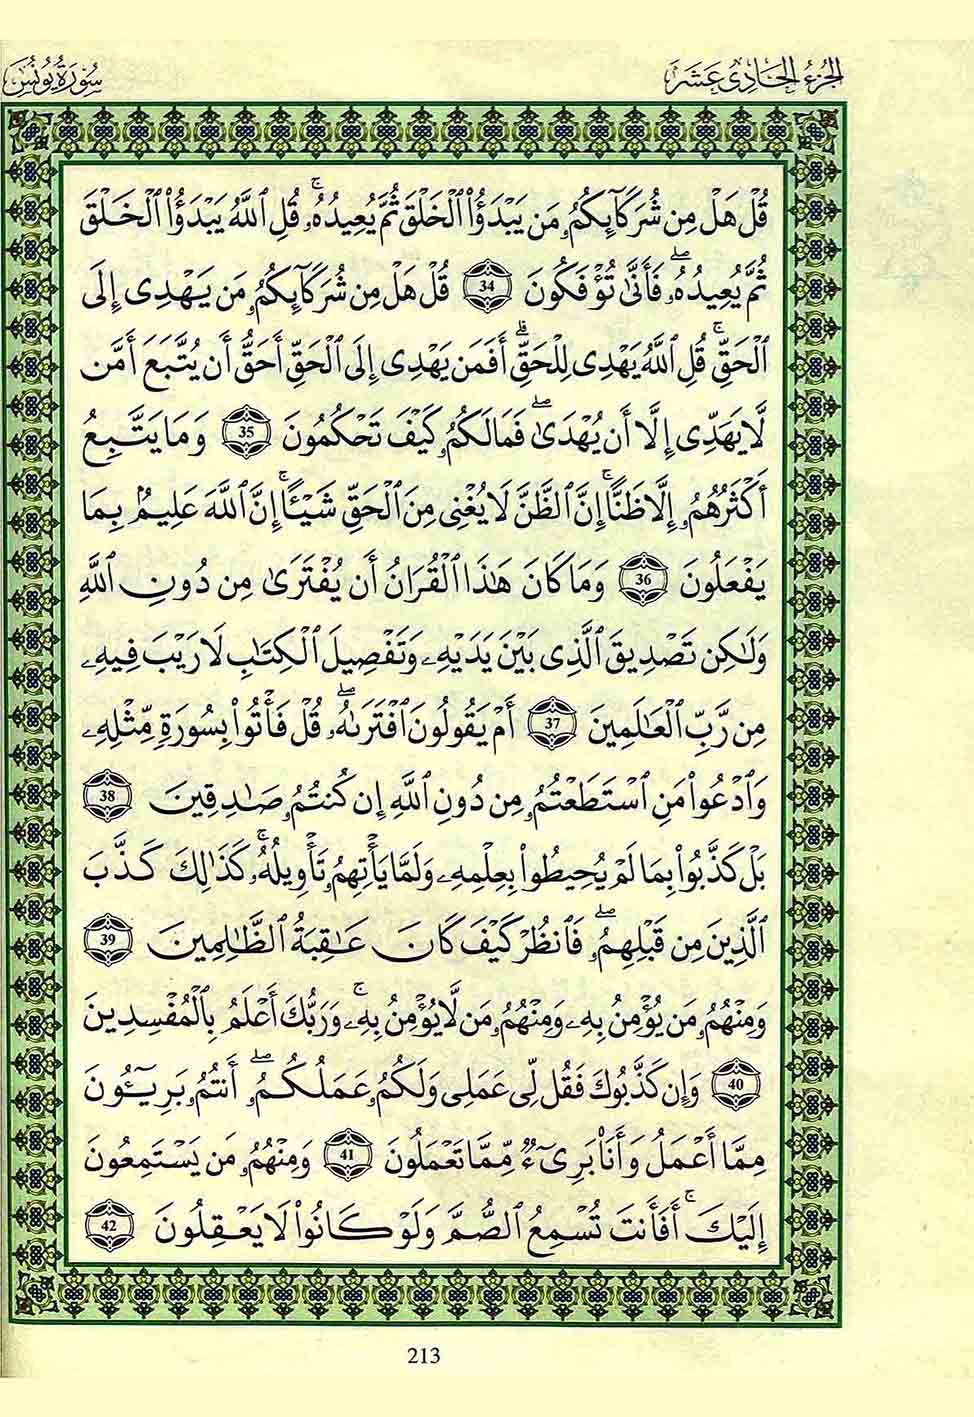 الجزء الحادي عشر
سورة يونس
قُلْ هَلْ مِن شُرَكَآئِكُمُۥ مَن يَبْدَؤُاْ اُ۬لْخَلْقَ ثُمَّ يُعِيدُهُۥۚ قُلِ اِ۬للَّهُ يَبْدَؤُاْ اُ۬لْخَلْقَ
ثُمَّ يُعِيدُهُۥۖ فَأَنَّىٰ تُؤْفَكُونَ 34 قُلْ هَلْ مِن شُرَكَآئِكُمُۥ مَن يَهْدِى إِلَى
اَ۬لْحَقِّۚ قُلِ اِ۬للَّهُ يَهْدِى لِلْحَقِّۗ أَفَمَن يَهْدِى إِلَى اَ۬لْحَقِّ أَحَقُّ أَن يُتَّبَعَ أَمَّن
لَّا يَهَدِّى إِلَّا أَن يُهْدَىٰۖ فَمَا لَكُمُۥ كَيْفَ تَحْكُمُونَ 35 وَمَا يَتَّبِعُ
أَكْثَرُهُمُۥ إِلَّا ظَنًّاۚ إِنَّ اَ۬لظَّنَّ لَا يُغْنِى مِنَ اَ۬لْحَقِّ شَيْـًٔاۚ إِنَّ اَ۬للَّهَ عَلِيمُۢ بِمَا
يَفْعَلُونَ 36 وَمَا كَانَ هَٰذَا اَ۬لْقُرَانُ أَن يُفْتَرَىٰ مِن دُونِ اِ۬للَّهِ
وَلَٰكِن تَصْدِيقَ اَ۬لَّذِى بَيْنَ يَدَيْهِۦ وَتَفْصِيلَ اَ۬لْكِتَٰبِ لَا رَيْبَ فِيهِۦ
مِن رَّبِّ اِ۬لْعَٰلَمِينَ 37 أَمْ يَقُولُونَ اَ۪فْتَرَىٰهُۥۖ قُلْ فَأْتُواْ بِسُورَةٍ مِّثْلِهِۦ
وَادْعُواْ مَنِ اِ۪سْتَطَعْتُمُۥ مِن دُونِ اِ۬للَّهِ إِن كُنتُمُۥ صَٰدِقِينَ 38
بَلْ كَذَّبُواْ بِمَا لَمْ يُحِيطُواْ بِعِلْمِهِۦ وَلَمَّا يَأْتِهِمُۥ تَأْوِيلُهُۥۚ كَذَٰلِكَ كَذَّبَ
اَ۬لَّذِينَ مِن قَبْلِهِمُۥۖ فَانظُرْ كَيْفَ كَانَ عَٰقِبَةُ اُ۬لظَّٰلِمِينَ 39
وَمِنْهُمُۥ مَن يُؤْمِنُ بِهِۦ وَمِنْهُمُۥ مَن لَّا يُؤْمِنُ بِهِۦۚ وَرَبُّكَ أَعْلَمُ بِالْمُفْسِدِينَ
40 وَإِن كَذَّبُوكَ فَقُل لِّى عَمَلِى وَلَكُمُۥ عَمَلُكُمُۥۖ أَنتُمُۥ بَرِيٓـُٔونَ
مِمَّا أَعْمَلُ وَأَنَا۠ بَرِىٓءٌ مِّمَّا تَعْمَلُونَ 41 وَمِنْهُمُۥ مَن يَسْتَمِعُونَ
إِلَيْكَۚ أَفَأَنتَ تُسْمِعُ اُ۬لصُّمَّ وَلَوْ كَانُواْ لَا يَعْقِلُونَ 42
213